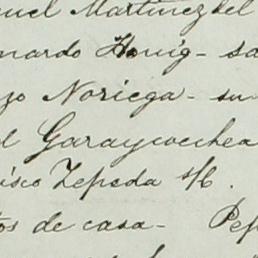 uel Martinez del
nardo Honig - sa
zo Noriega - su
l Garaycochea
isco Zepeda
tos de casa - Pep